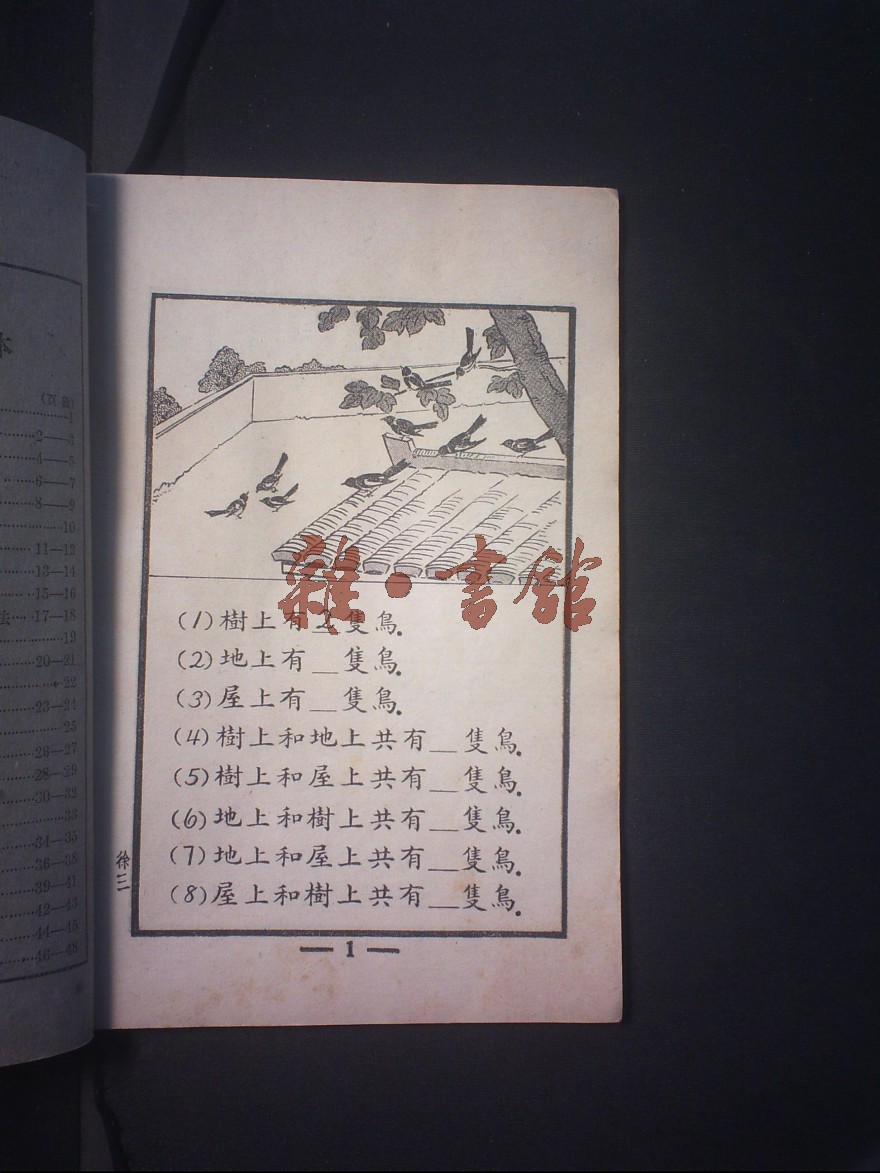 本
(頁面)
1
2—3
4—5
6—7
8—9
10
11—12
13—14
15—16
法 17—18
19
20—21
22
23—24
25
26—27
28—29
30—32
33
34—35
36—38
39—41
42—43
44—45
46—48
雜·書館
(1)樹上有2隻鳥.
(2)地上有__隻鳥.
(3)屋上有__隻鳥.
(4)樹上和地上共有__隻鳥.
(5)樹上和屋上共有__隻鳥.
(6)地上和樹上共有__隻鳥.
(7)地上和屋上共有__隻鳥.
(8)屋上和樹上共有__隻鳥.
徐三
— 1 —